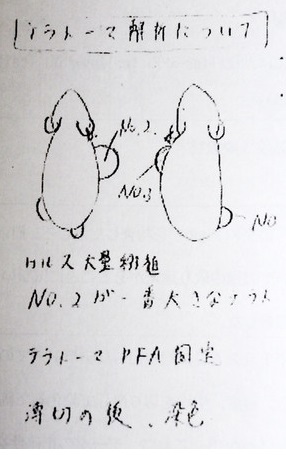 テラトーマ解析について
No.2
No.3
No
大量
No.2が一番大きなテラト
テラトーマ PFA固定
薄切の後、染色